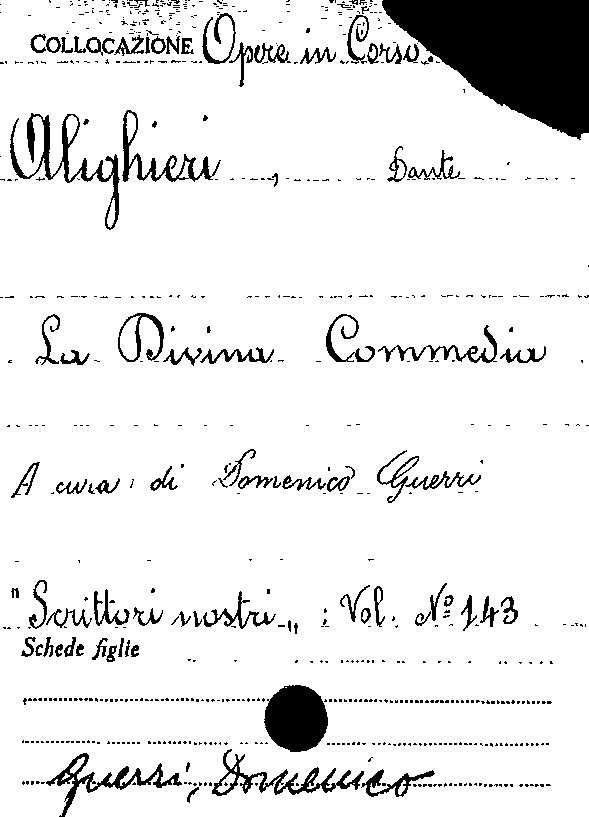 COLLOCAZIONE Opere in Corso.
Alighieri, Dante
La Divina Commedia
A cura di Domenico Guerri
"Scrittori nostri„ : Vol. Nº 143
Schede figlie
Guerri, Domenico